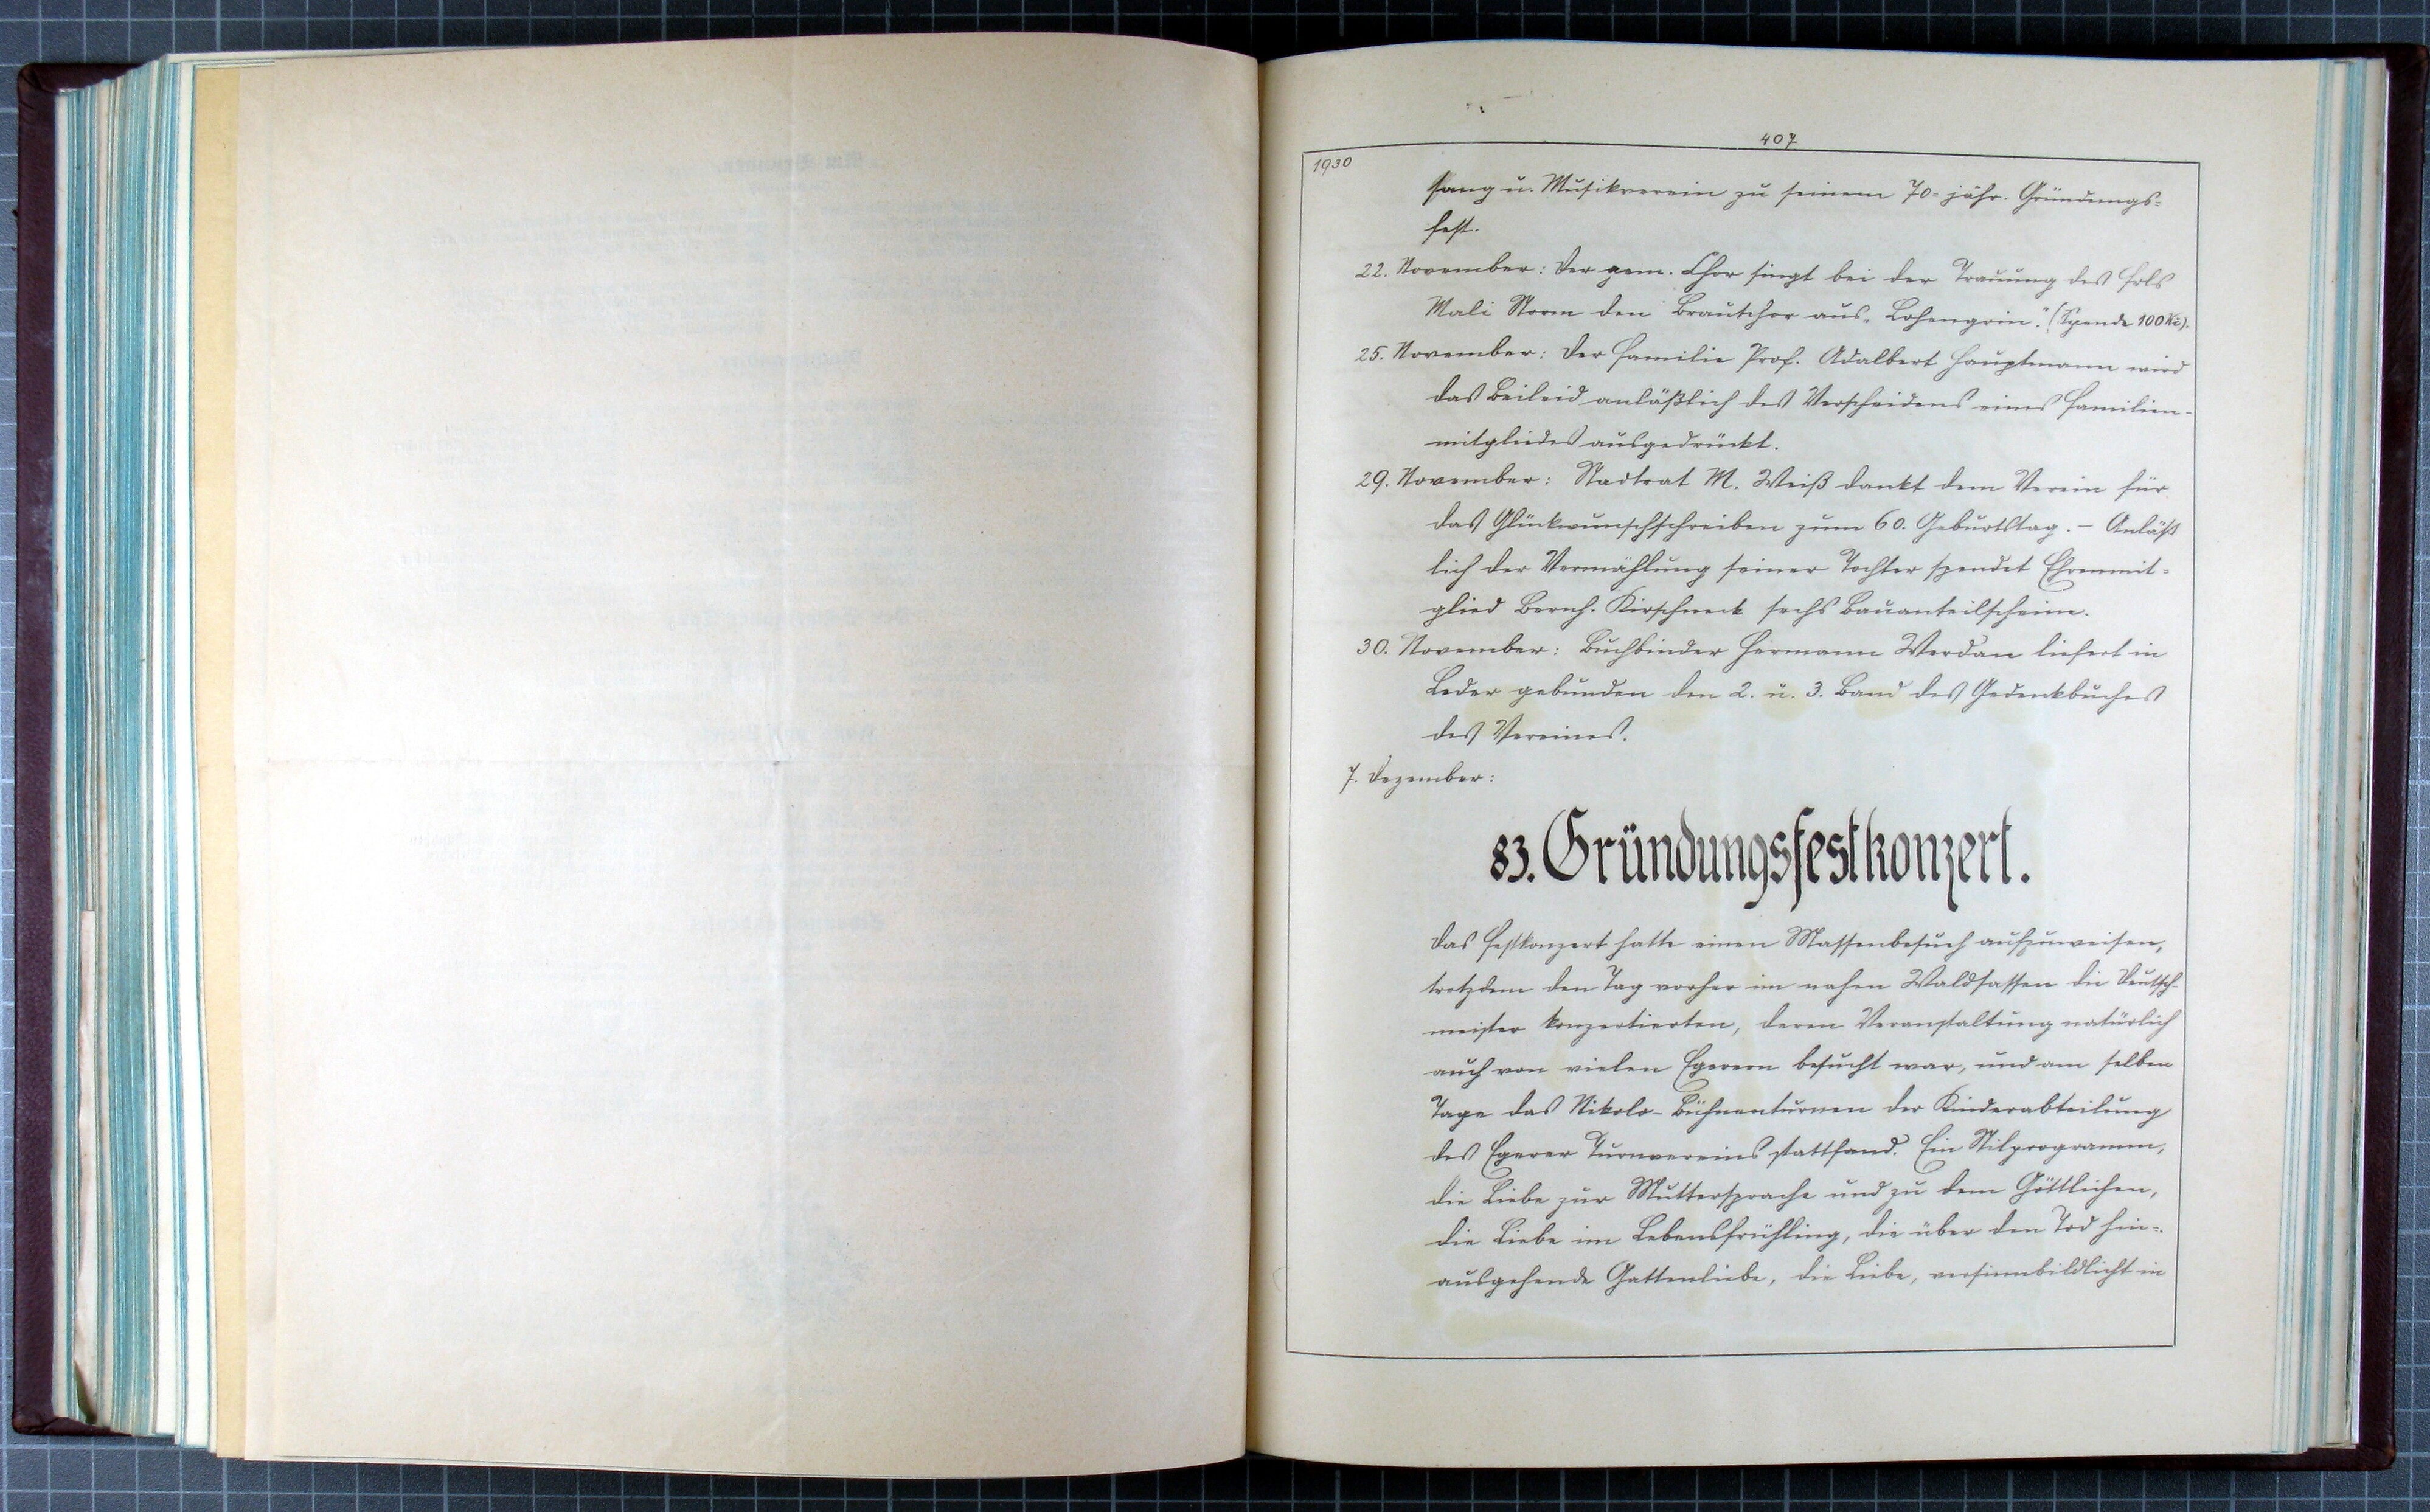 407
1930
sang u. Musikverein zu seinem 70-jähr. Gründungs-
fest.
22. November: Der gem. Chor singt bei der Trauung des Frls
Mali Storm den Brautchor aus „Lohengrin." (Spende 100 Kč).
25. November: Der Familie Prof. Adalbert Hauptmann wird
das Beileid anläßlich des Verscheidens eines Familien-
mitgliedes ausgedrückt.
29. November: Stadtrat M. Weiß dankt dem Verein für
das Glückwunschschreiben zum 60. Geburtstag. – Anläß
lich der Vermählung seiner Tochter spendet Ehrenmit-
glied Bernh. Kirschneck sechs Bauanteilscheine.
30. November: Buchbinder Hermann Werdan liefert in
Leder gebunden den 2. u. 3. Band des Gedenkbuches
des Vereines.
7. Dezember:
83. Gründungsfestkonzert.
Das Festkonzert hatte einen Massenbesuch aufzuweisen,
trotzdem den Tag vorher im nahen Waldsassen die Deutsch-
meister konzertierten, deren Veranstaltung natürlich
auch von vielen Egerern besucht war, und am selben
Tage das Nikolo-Bühnenturnen der Kinderabteilung
des Egerer Turnvereins stattfand. Ein Stilprogramm,
die Liebe zur Muttersprache und zu dem Göttlichen,
die Liebe im Lebensfrühling, die über den Tod hin-
ausgehende Gattenliebe, die Liebe, versinnbildlicht in